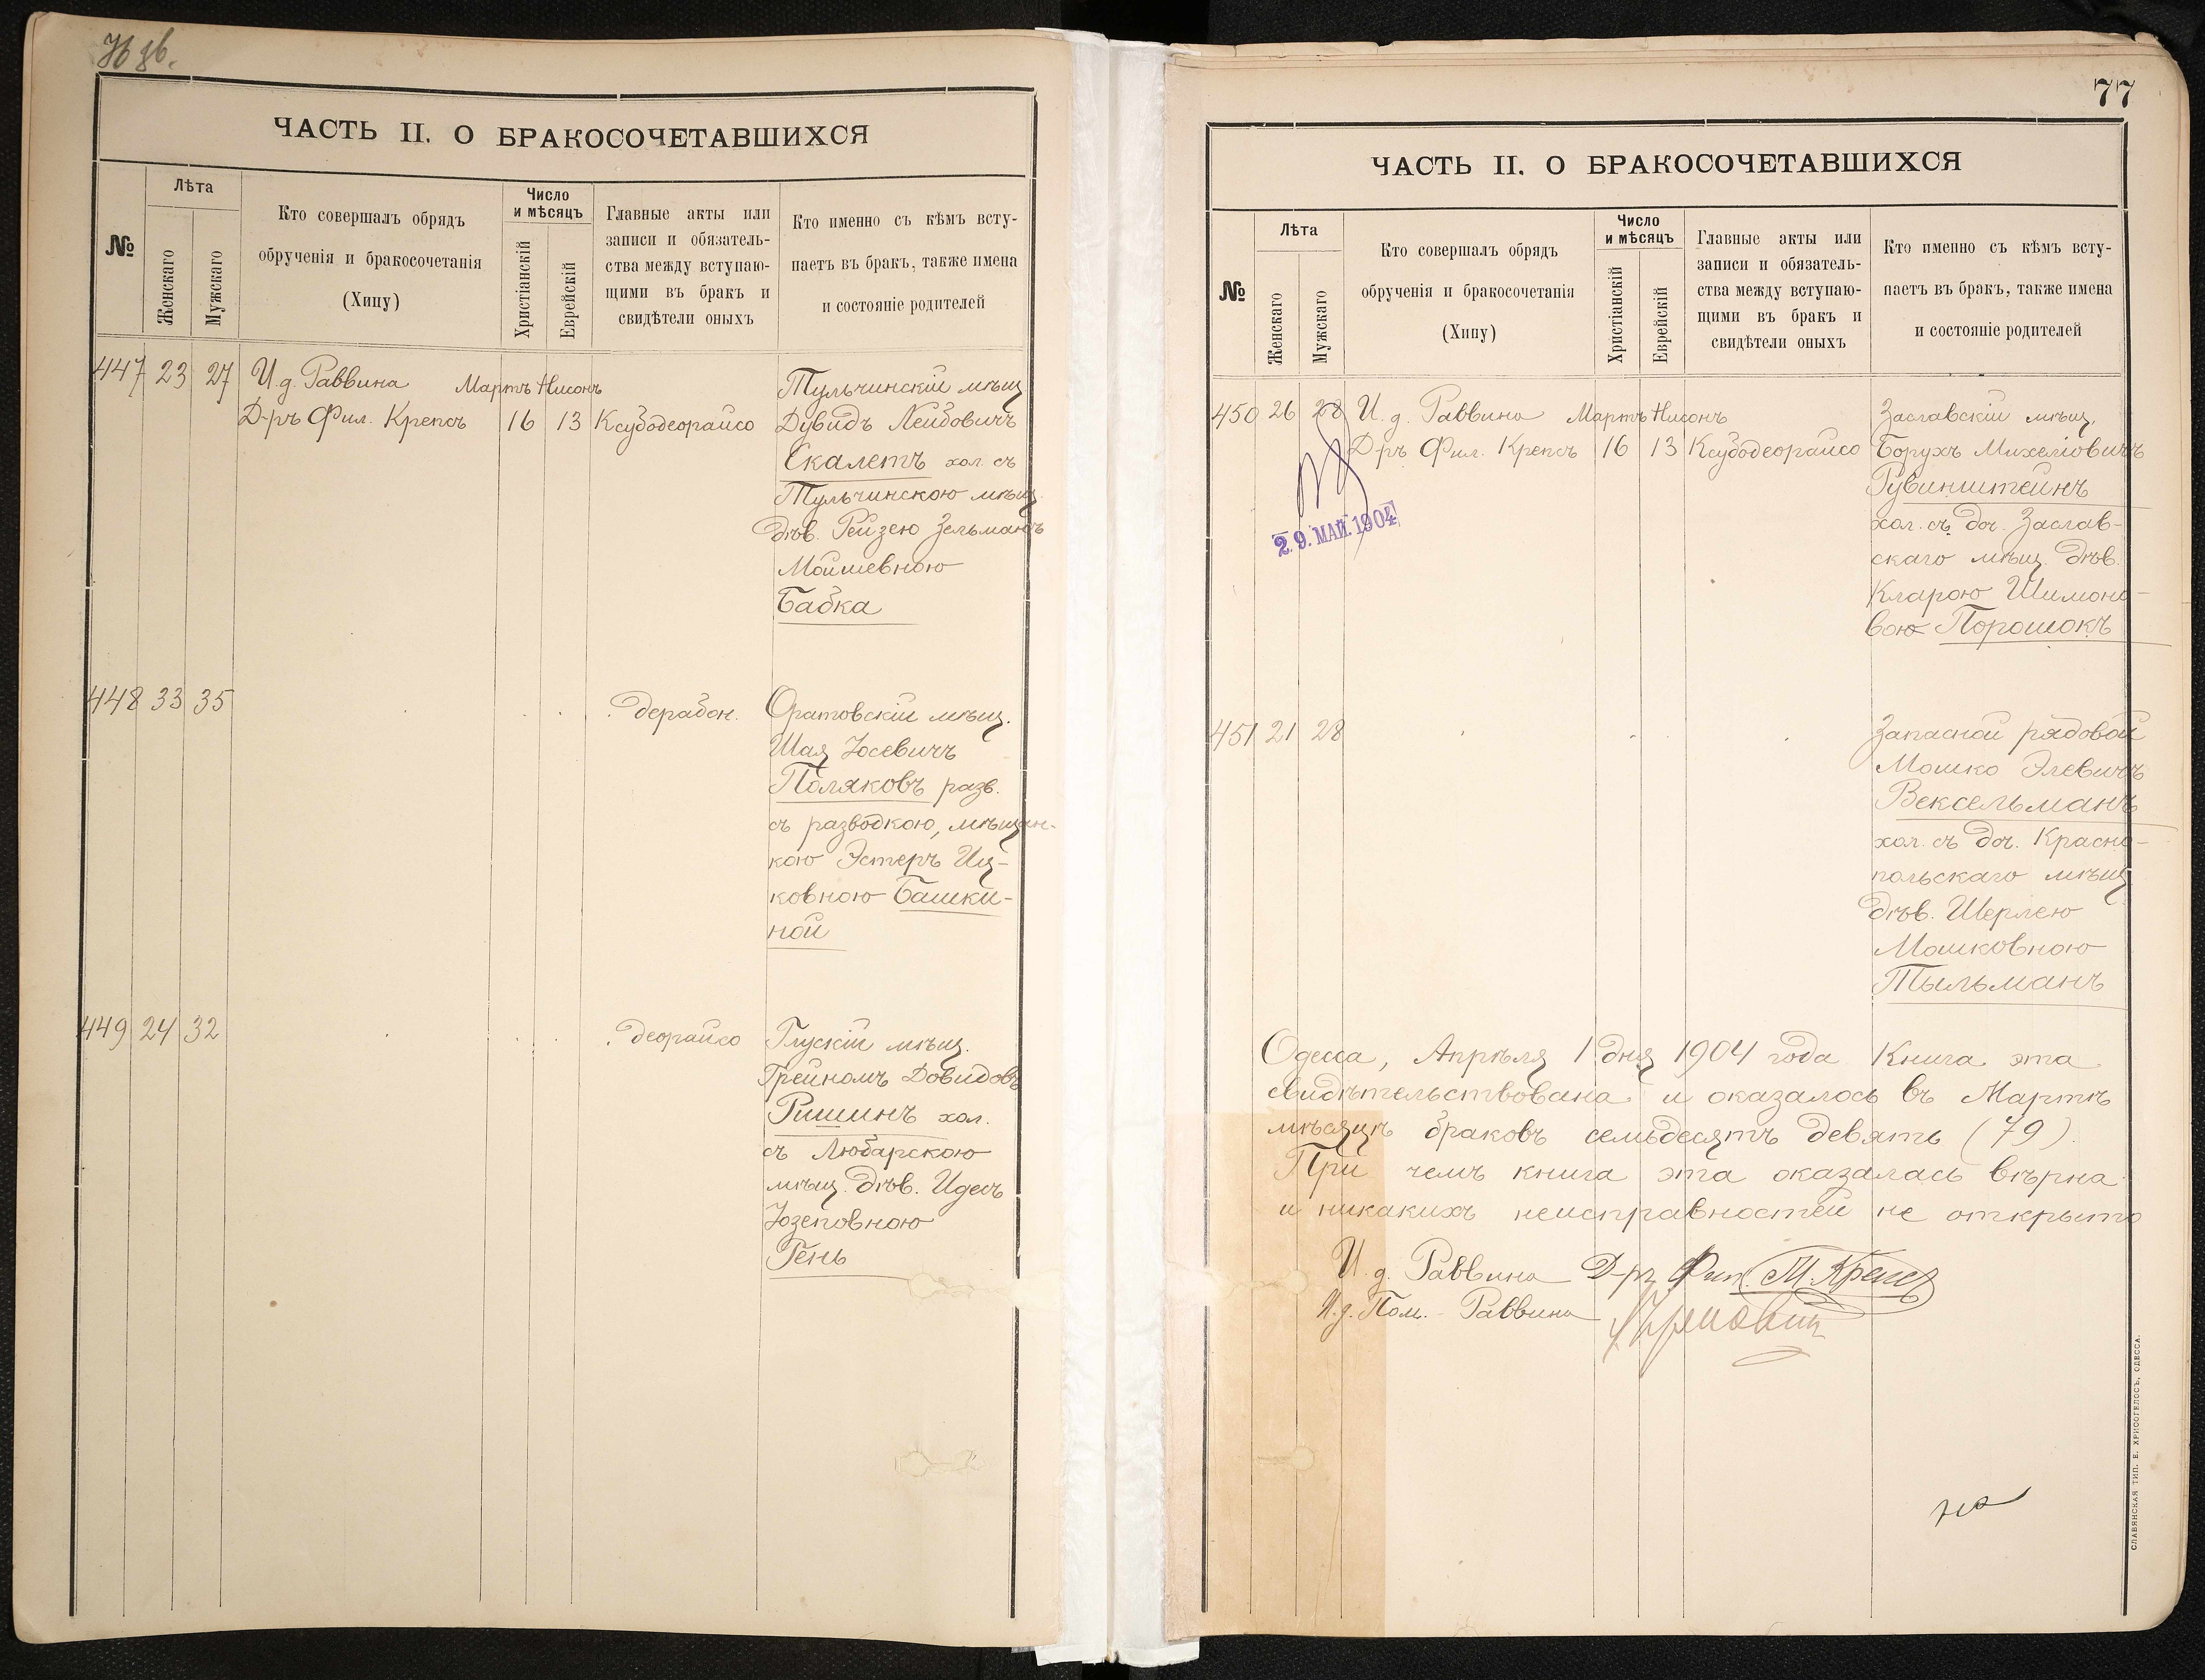 ЧАСТЬ II. О БРАКОСОЧЕТАВШИХСЯ
№
Лѣта
Женскаго
Мужскаго
Кто совершалъ обрядъ
обрученія и бракосочетанія
(Хипу)
Число
и мѣсяцъ
Христіанскій
Еврейскій
Главные акты или
записи и обязатель-
ства между вступаю-
щими въ бракъ и
свидѣтели оныхъ
Кто именно съ кѣмъ всту-
паетъ въ бракъ, также имена
и состояніе родителей
447 23 27 И. д. Раввина Мартъ Нисонъ Тульчинскій мѣщ.
Д-ръ Фил. Крепсъ 16 13 Ксубодеорайсо Дувидъ Лейбовичъ
Скалетъ хол. съ
Тульчинскою мѣщ.
дѣв. Рейзею Зельманъ
Мойшевною
Бабка
448 33 35 дерабон. Оратовскій мѣщ.
Шая Іосевичъ
Поляковъ разв.
съ разводкою, мѣщан-
кою Эстеръ Иц-
ковною Башки-
ной
449 24 32 деорайсо Глускій мѣщ.
Грейномъ Довидовъ
Ришинъ хол.
съ Любарскою
мѣщ. дѣв. Идесъ
Іозеповною
Гень
77
ЧАСТЬ II. О БРАКОСОЧЕТАВШИХСЯ
№
Лѣта
Женскаго
Мужскаго
Кто совершалъ обрядъ
обрученія и бракосочетанія
(Хипу)
Число
и мѣсяцъ
Христіанскій
Еврейскій
Главные акты или
записи и обязатель-
ства между вступаю-
щими въ бракъ и
свидѣтели оныхъ
Кто именно съ кѣмъ всту-
паетъ въ бракъ, также имена
и состояніе родителей
450 26 28 И. д. Раввина Мартъ Нисонъ Заславскій мѣщ.
Д-ръ Фил. Крепсъ 16 13 Ксубодеорайсо Борухъ Михеліовичъ
Рувинштейнъ
хол. съ доч. Заслав-
скаго мѣщ. дѣв.
Кларою Шимоно-
вою Порошокъ
29. МАЙ. 1904
451 21 28 Запасной рядовой
Мошко Элевичъ
Вексельманъ
хол. съ доч. Красно-
польскаго мѣщ.
дѣв. Шерлею
Мошковною
Тыльманъ
Одесса, Апрѣля 1 дня 1904 года. Книга эта
свидѣтельствована и оказалось въ Мартѣ
мѣсяцѣ браковъ семьдесятъ девять (79).
При чемъ книга эта оказалась вѣрна
и никакихъ неисправностей не открыто
И. д. Раввина Д-ръ Фил. М. Крепсъ
И. д. Пом. Раввина
СЛАВЯНСКАЯ ТИП. Е. ХРИСОГЕЛОСЪ, ОДЕССА.